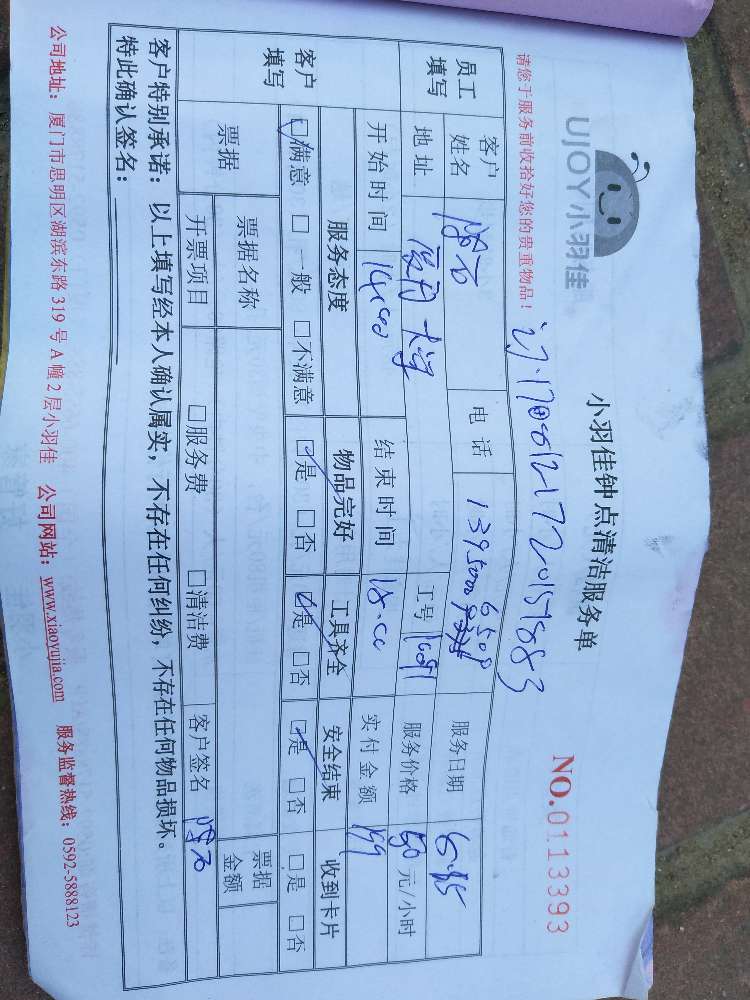 UJOY小羽佳
小羽佳钟点清洁服务单
NO.0113393
请您于服务前收拾好您的贵重物品！
员工填写
客户姓名
电话 1395000
服务日期
地址 厦门大学
工号
服务价格 50 元/小时
客户填写
开始时间 14:00
结束时间 18:00
实付金额 199
服务态度 物品完好 工具齐全 安全结束 收到卡片
☑满意 □一般 □不满意 ☑是 □否 ☑是 □否 ☑是 □否 □是 □否
票据 票据名称 票据金额
开票项目 □服务费 □清洁费 客户签名
客户特别承诺：以上填写经本人确认属实，不存在任何纠纷，不存在任何物品损坏。
特此确认签名：
公司地址：厦门市思明区湖滨东路319号A幢2层小羽佳 公司网站：www.xiaoyujia.com 服务监督热线：0592-5888123